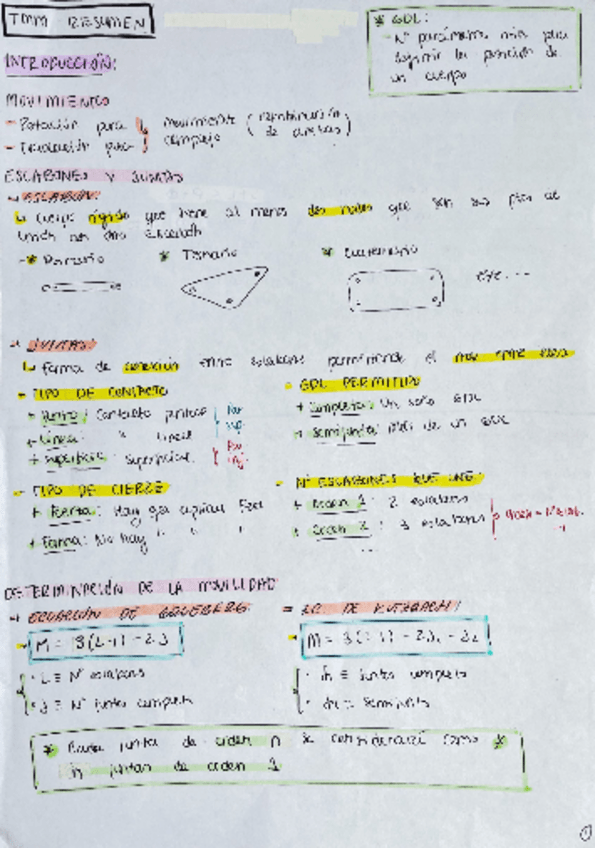 TMM RESUMEN
* GDL:
Nº parámetros min para
definir la posición de
un cuerpo
INTRODUCCIÓN:
MOVIMIENTO
- Rotación pura
- Traslación pura
movimiento complejo (combinación de ambas)
ESLABONES Y JUNTAS
ESLABÓN:
cuerpo rígido que tiene al menos dos nodos que son sus ptos de
unión con otro eslabón
* Binario * Ternario * Cuaternario
etc...
JUNTAS
forma de conexión entre eslabones permitiendo el mov entre ellos
- TIPO DE CONTACTO
+ Puntro: Contacto puntual
+ Línea: " lineal
+ Superficie: superficial
Par sup.
Par inf.
- GDL PERMITIDO
+ Completa: Un solo GDL
+ Semijunta: Más de un GDL
- TIPO DE CIERRE
+ Fuerza: Hay que aplicar Fza
+ Forma: No hay " " "
- Nº ESLABONES QUE UNE
+ Orden 1: 2 eslabones
+ Orden 2: 3 eslabones
...
DETERMINACIÓN DE LA MOVILIDAD
ECUACIÓN DE GRUEBLER:
M = 3(L-1) - 2J
· L ≡ Nº eslabones
· J ≡ Nº juntas completas
EC. DE KUTZBACH:
M = 3(L-1) - 2J₁ - J₂
· J₁ ≡ Junta completa
· J₂ ≡ Semijunta
* junta de orden n se considerará como *
n juntas de orden 1
1